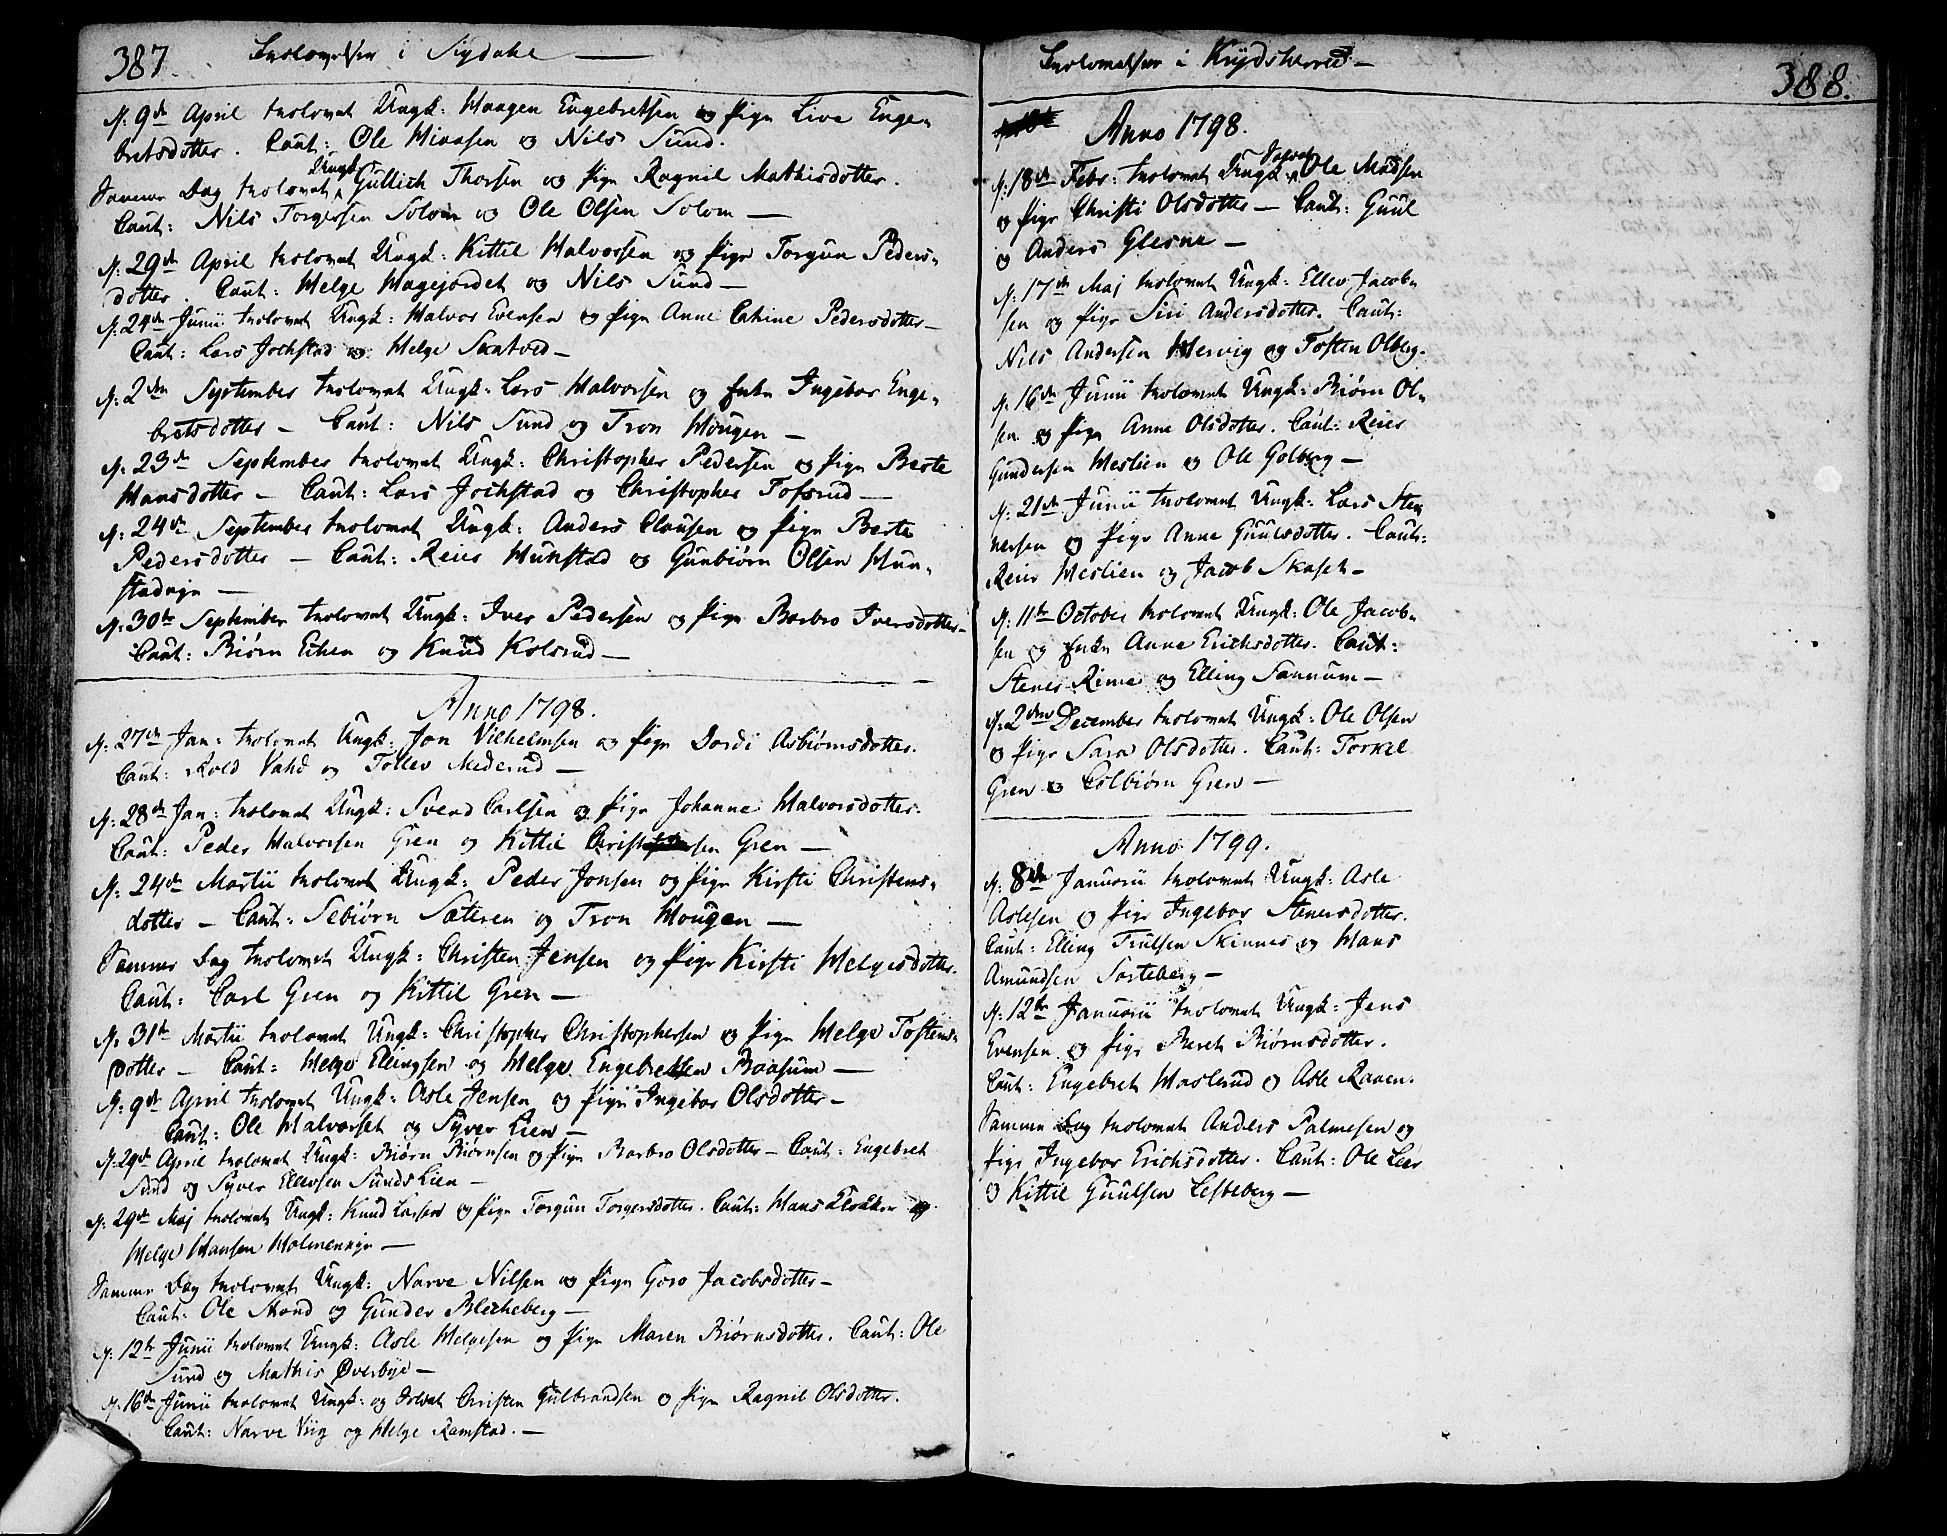 387. Trolovelser i Sigdahl —
d: 9de April trolovet Ungk: Haagen Engebretsen og Pige Live Enge-
bretsdotter. Caut: Ole Hiaasen og Nils Sund.
Samme Dag trolovet Ungk: Gullich Thorsen og Pige Ragnil Mathisdotter
Caut: Nils Torgersen Solom og Ole Olsen Solom —
d: 29de April trolovet Ungk: Kittil Halvorsen og Pige Torgun Peders-
dotter. Caut: Helge Hagejordet og Nils Sund —
d: 24de Junii trolovet Ungk: Halvor Evensen og Pige Anne Cahine Pedersdotter —
Caut: Lars Jochstad og Helge Skatved —
d: 2den September trolovet Ungk: Lars Halvorsen og Enke Ingebor Enge-
bretsdotter — Caut: Nils Sund og Tron Hougen —
d: 23de September trolovet Ungk: Christopher Pedersen og Pige Berte
Hansdotter — Caut: Lars Jochstad og Christopher Tofsrud —
d: 24de September trolovet Ungk: Anders Clausen og Pige Berte
Pedersdotter — Caut: Reier Hunstad og Gunbiørn Olsen Hun-
stadeje —
d: 30te September trolovet Ungk: Iver Pedersen og Pige Barbro Iversdotter —
Caut: Biørn Echen og Knud Kolsrud —
Anno 1798.
d: 27de Jan: trolovet Ungk: Jon Vilhelmsen og Pige Dordi Asbiørnsdotter.
Caut: Rold Vahd og Tollev Mederud —
d: 28de Jan: trolovet Ungk: Svend Carlsen og Pige Johanne Halvorsdotter.
Caut: Peder Halvorsen Gren og Kittil Christensen Gren —
d: 24de Martii trolovet Ungk: Peder Jonsen og Pige Kirsti Christens-
dotter — Caut: Sebiørn Sæteren og Tron Hougen —
Samme Dag trolovet Ungk: Christen Jensen og Pige Kirsti Helgesdotter.
Caut: Carl Gren og Kittil Gren —
d: 31te Martii trolovet Ungk: Christopher Christophersen og Pige Helge Tostens-
dotter — Caut: Helge Ellingsen og Helge Engebretsen Baasum —
d: 9de April trolovet Ungk: Asle Jensen og Pige Ingebor Olsdotter —
Caut: Ole Halvorset og Syver Lien —
d: 29de April trolovet Ungk: Biørn Biørnsen og Pige Barbro Olsdotter — Caut: Engebret
Sund og Syver Ellevsen Sunds Lien —
d: 29de Maj trolovet Ungk: Knud Larsen og Pige Torgun Torgersdotter. Caut: Hans Klokker og
Helge Hansen Holmeneje —
Samme Dag trolovet Ungk: Narve Nilsen og Pige Goro Jacobsdotter —
Caut: Ole Strand og Gunder Blecheberg —
d: 12te Junii trolovet Ungk: Asle Helgesen og Pige Maren Biørnsdotter. Caut: Ole
Sund og Mathis Øverbye —
d: 16de Junii trolovet Ungk: og Soldat Christen Gulbrandsen og Pige Ragnil Olsdotter.
Caut: Narve Viig og Helge Ramstad. —
Trolovelser i Krydsherred — 388.
Anno 1798.
d: 18de Febr: trolovet Ungk: Soldat Ole Madsen
og Pige Christi Olsdotter — Caut: Guul
og Anders Glesne —
d: 17de Maj trolovet Ungk: Ellev Jacob-
sen og Pige Siri Andersdotter. Caut:
Nils Andersen Hervig og Tosten Olberg.
d: 16de Junii trolovet Ungk: Biørn Ol-
sen og Pige Anne Olsdotter. Caut: Reier
Gundersen Heslien og Ole Golberg —
d: 21de Junii trolovet Ungk: Lars Ste-
nersen og Pige Anne Guulsdotter. Caut:
Reier Heslien og Jacob Skaset —
d: 11te October trolovet Ungk: Ole Jacob-
sen og Enke Anne Erichsdotter. Caut:
Stener Rime og Elling Sannum —
d: 2den December trolovet Ungk: Ole Olsen
og Pige Sara Olsdotter. Caut: Torkel
Gren og Colbiørn Gren —
Anno 1799.
d: 8de Januarii trolovet Ungk: Asle
Aslesen og Pige Ingebor Stenersdotter.
Caut: Elling Trulsen Skinnes og Hans
Amundsen Sorteberg —
d: 12te Januarii trolovet Ungk: Jens
Evensen og Pige Beret Biørnsdotter.
Caut: Engebret Haslerud og Asle Raaen.
Samme Dag trolovet Anders Palmesen og
Pige Ingebor Erichsdotter. Caut: Ole Leer
og Kittil Guulsen Lesteberg —